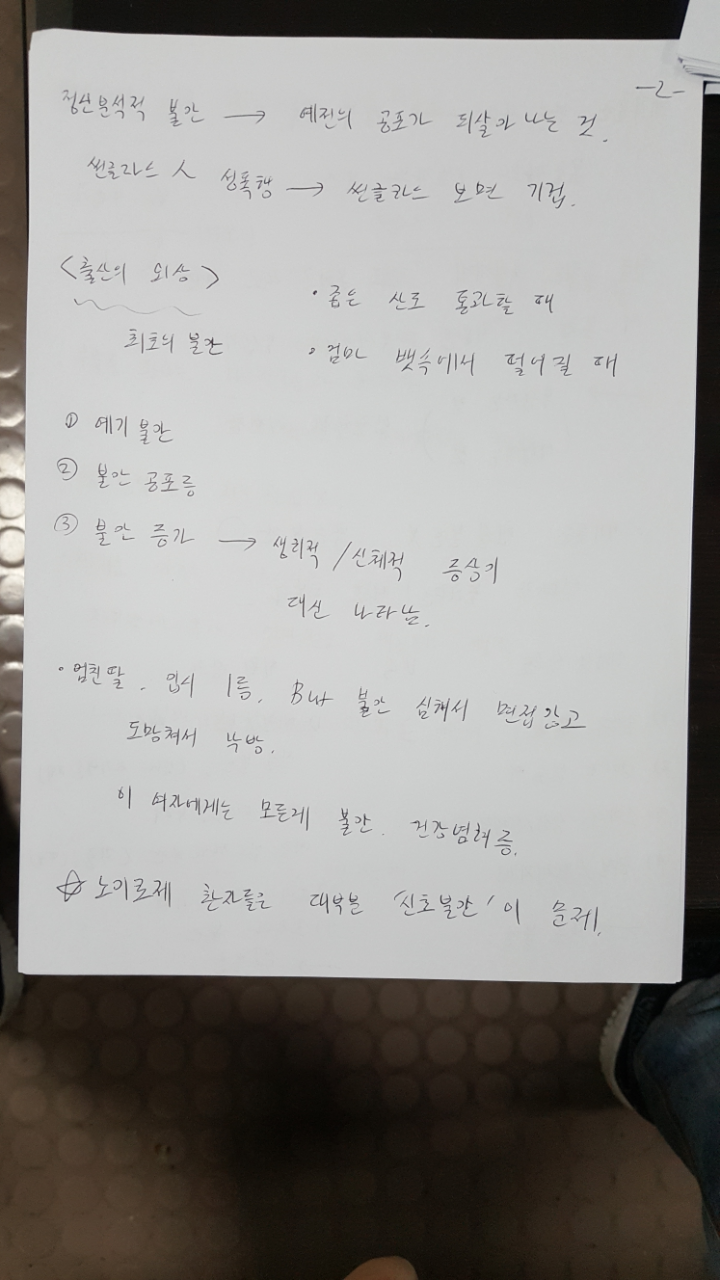 -2-
정신분석적 불안 → 예전의 공포가 되살아 나는 것.
썬글라스 人 성폭행 → 썬글라스 보면 기겁.
<출산의 외상>
• 좁은 산도 통과할 때
최초의 불안
• 엄마 뱃속에서 떨어질 때
① 예기 불안
② 불안 공포증
③ 불안 등가 → 생리적 / 신체적 증상이
대신 나타남.
• 엄친딸. 입시 1등. But 불안 심해서 면접 않고
도망쳐서 낙방.
이 여자에게는 모든게 불안. 건강염려증.
☆ 노이로제 환자들은 대부분 '신호불안'이 문제!.